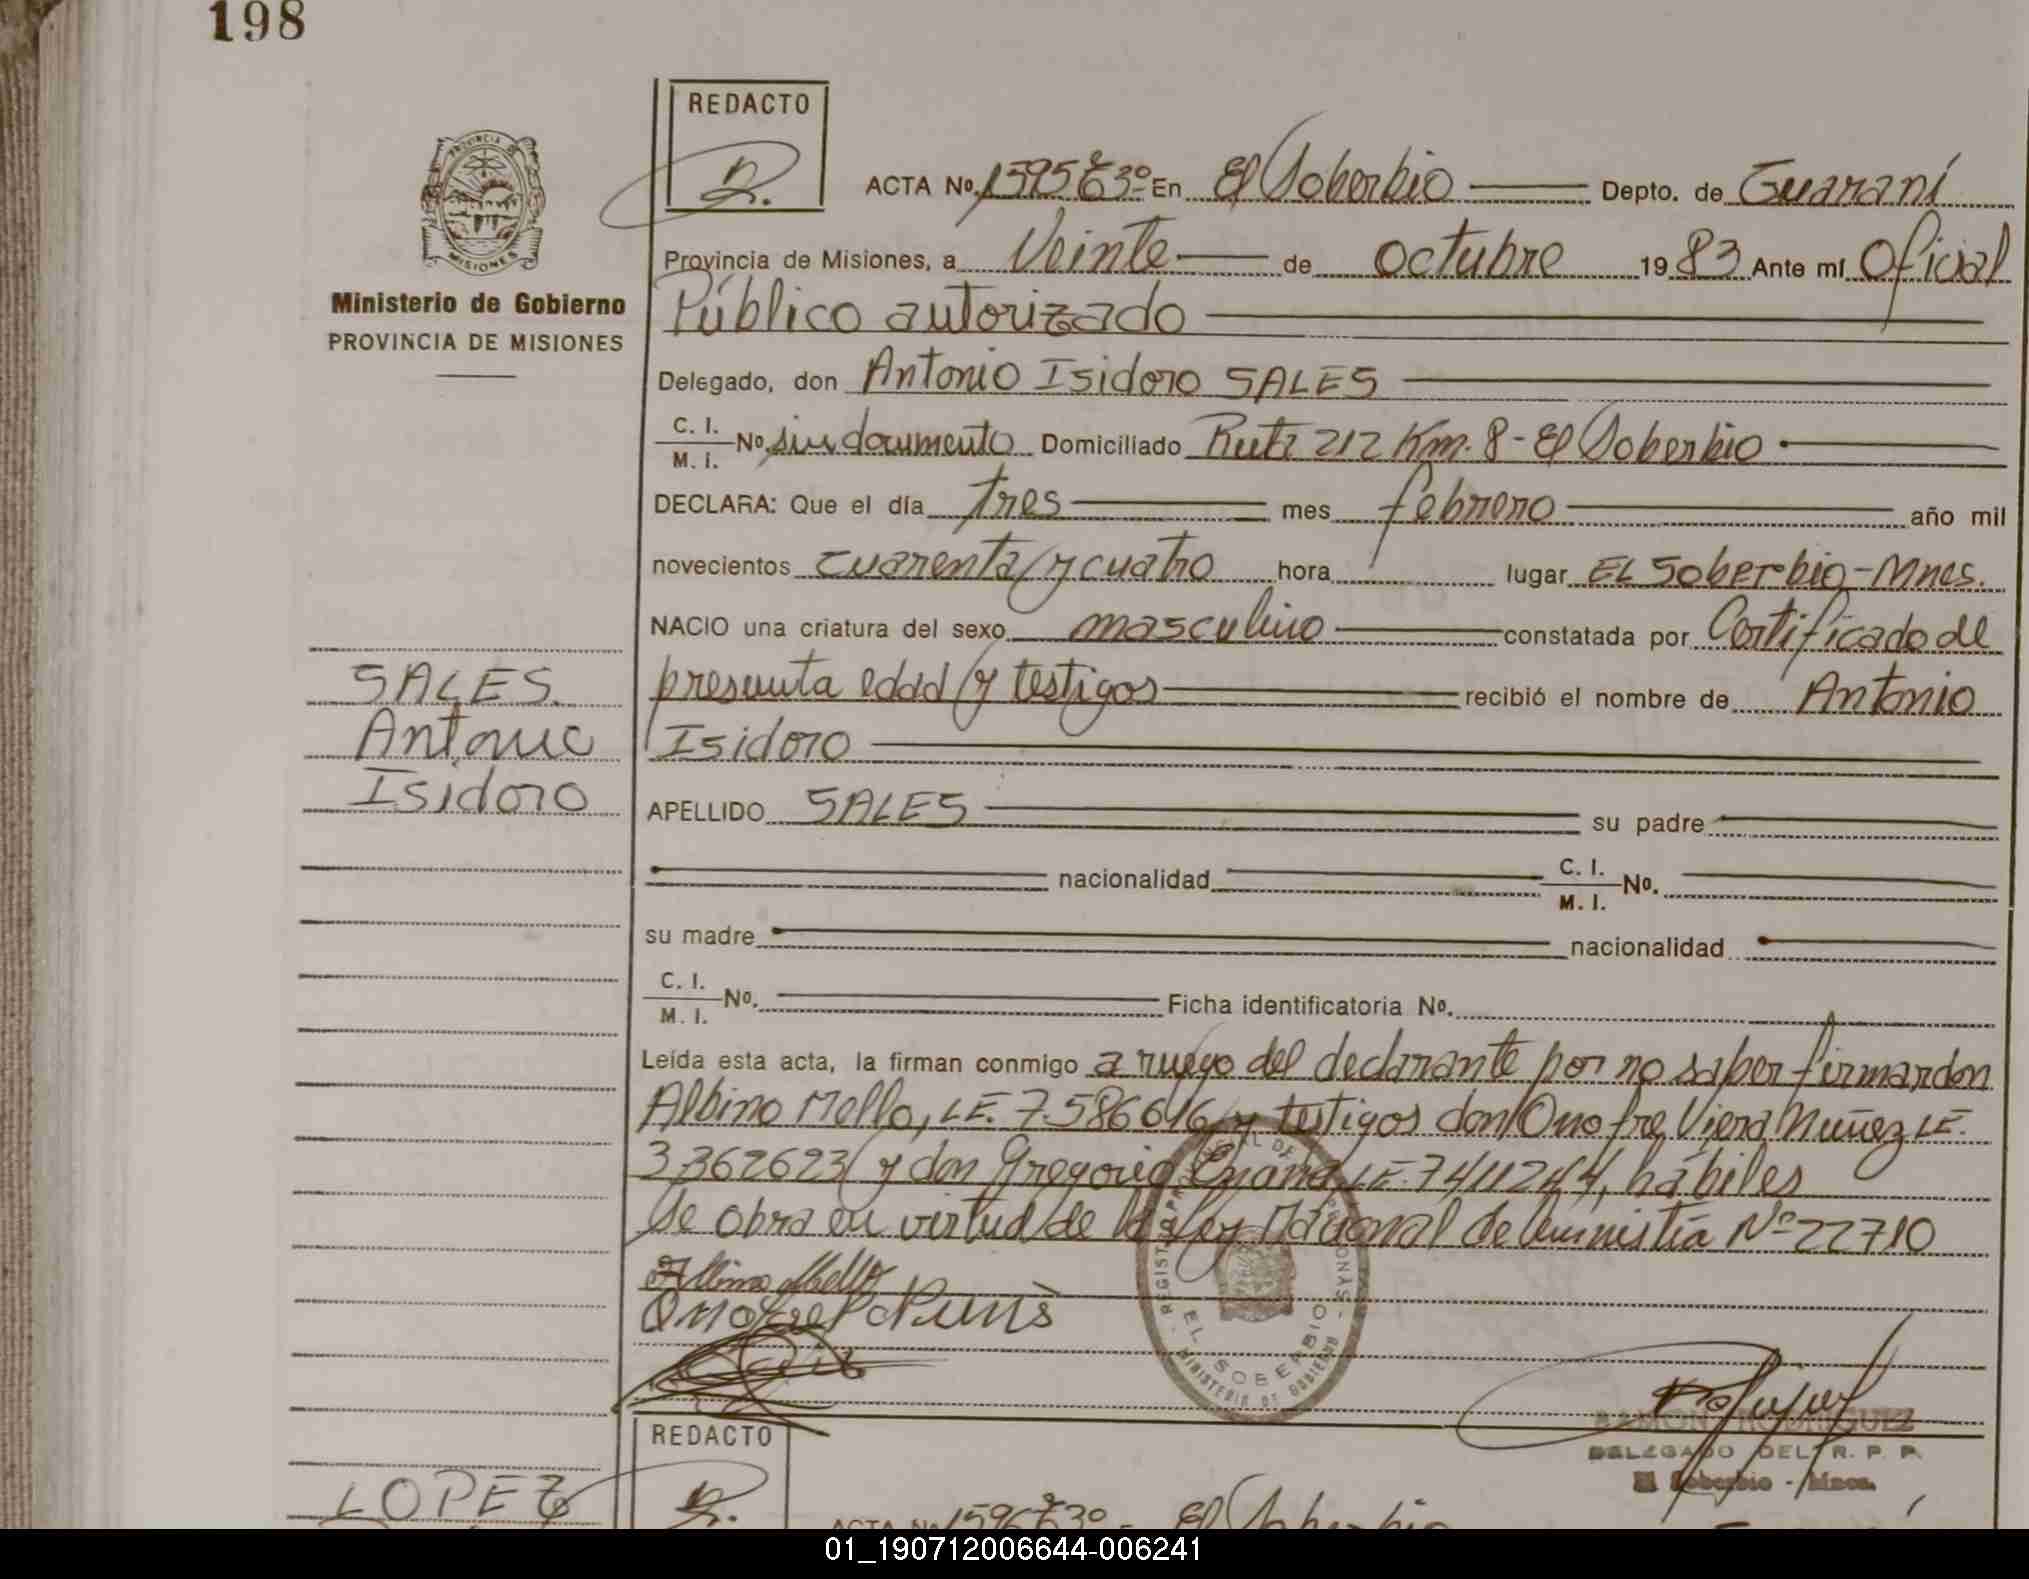 198
REDACTO
ACTA No. 1595 T 3º En El Soberbio Depto. de Guaraní
Provincia de Misiones, a Veinte de octubre 1983 Ante mí Oficial
Público autorizado
Delegado, don Antonio Isidoro SALES
C. I.
M. I. No. sin documento Domiciliado Ruta 212 Km. 8 - El Soberbio
DECLARA: Que el día tres mes febrero año mil
novecientos cuarenta y cuatro hora lugar EL Soberbio - Mnes.
NACIO una criatura del sexo masculino constatada por Certificado de
presunta edad y testigos recibió el nombre de Antonio
Isidoro
APELLIDO SALES su padre
nacionalidad C. I.
M. I. No.
su madre nacionalidad
C. I.
M. I. No. Ficha identificatoria No.
Leída esta acta, la firman conmigo a ruego del declarante por no saber firmar don
Albino Mello, LE. 7.586616 y testigos don Onofre Viera Nuñez LE.
3.362623 y don Gregorio LE. 7411244, hábiles
Se obra en virtud de la Ley Nacional de Amnistía Nº 22710
Albino Mello
Onofre
Ministerio de Gobierno
PROVINCIA DE MISIONES
SALES
Antonio
Isidoro
PROVINCIA DE
MISIONES
EL SOBERBIO
MINISTERIO DE GOBIERNO
RAMON RODRIGUEZ
DELEGADO DEL R. P. P.
El Soberbio - Mnes.
LOPEZ
REDACTO
ACTA No. 1596 T 3º El Soberbio
01_190712006644-006241